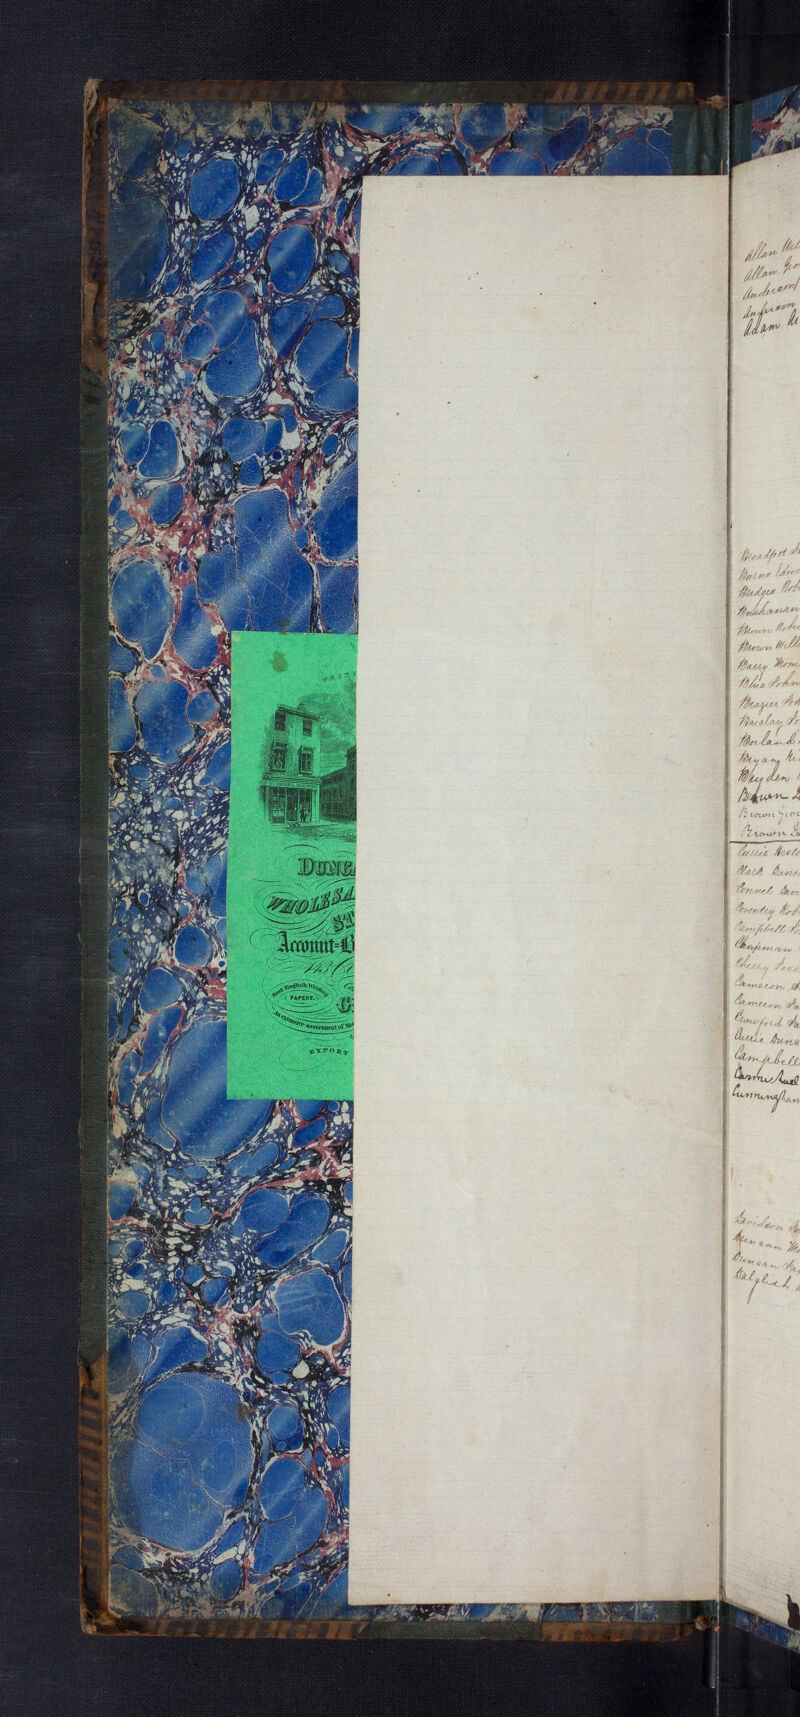 WESTE
DUNCA
WHOLESA
ST
Account-B
143 C
Best English Writing
PAPERS.
G
An extensive assortment of Me
EXPORT
Allan Wil
Allan Geo
Anderson
Anderson
Adam
Breadfoot
Burns Edwa
Bridges Rob
Buchanan
Brown Robe
Brown Willi
Barry Thom
Blue John
Brazier Joh
Barclay Jo
Borland
Bryan
Bayden
Brown
Brown Geo
Brown
Currie
Clark Dunc
Connel Davi
Coventry Rob
Campbell
Chapman
Cherry
Cameron
Cameron
Crawford
Currie Dunc
Campbell
Carmichael
Cunningham
Davidson
Duncan
Duncan
Dalglish